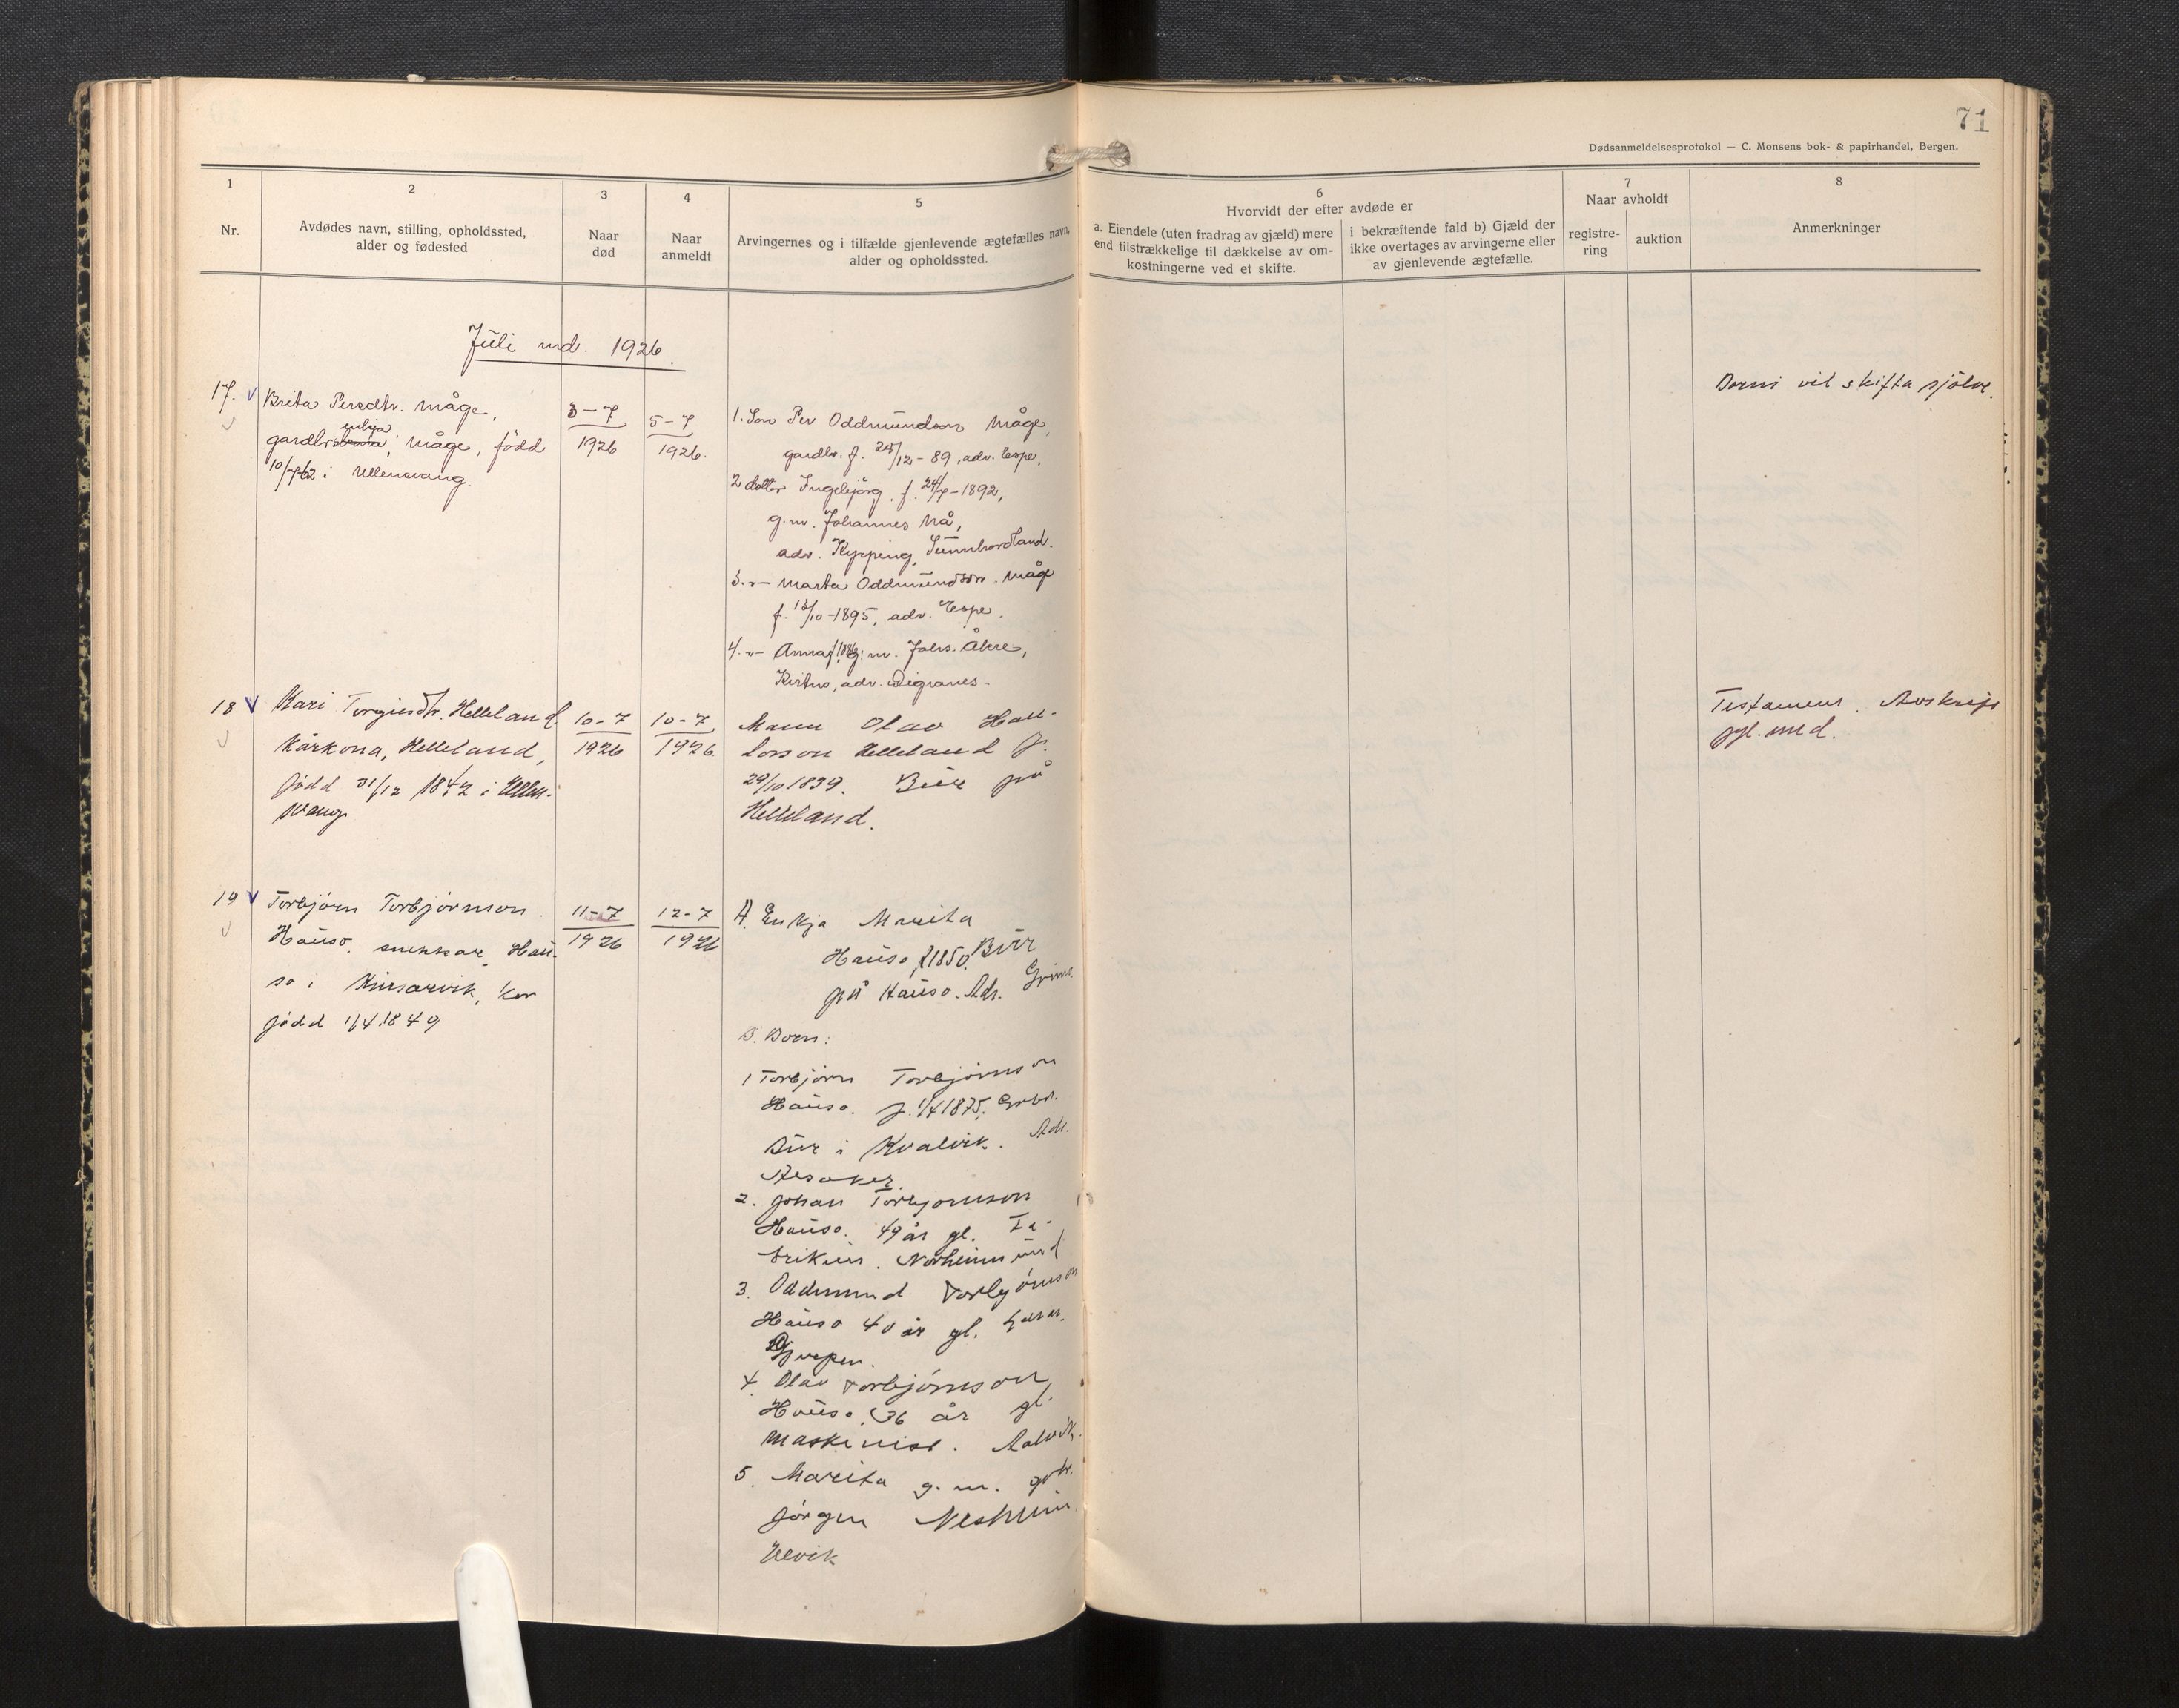 71
Dødsanmeldelsesprotokol — C. Monsens bok- & papirhandel, Bergen.
1
Nr.
2
Avdødes navn, stilling, opholdssted,
alder og fødested
3
Naar
død
4
Naar
anmeldt
5
Arvingernes og i tilfælde gjenlevende ægtefælles navn,
alder og opholdssted.
6
Hvorvidt der efter avdøde er
a. Eiendele (uten fradrag av gjæld) mere
end tilstrækkelige til dækkelse av om-
kostningerne ved et skifte.
i bekræftende fald b) Gjæld der
ikke overtages av arvingerne eller
av gjenlevende ægtefælle.
7
Naar avholdt
registre-
ring
auktion
8
Anmerkninger
Juli md. 1926.
17.
Brita Persdtr. Måge,
enkja
gardbr. Måge, född
i Ullensvang.
3-7
1926
5-7
1926.
1. Son Per Oddmundson Måge,
gardbr. f. 25/12-89, adr. Espe.
2 dotter Ingebjörg, f. 24/7-1892,
g.m. Johannes Nå,
adr. Kypping, Sunnhordland.
3. -"- Marta Oddmundsdtr. Måge
f. 13/10-1895, adr. Espe.
4. -"- Anna g.m. Johs. Åkre,
adr. Digranes.
Borni vil skifta sjölve.
18
Kari Torgiesdtr. Helleland.
Kårkona, Helleland,
född 31/12 1842 i Ullens-
vang
10-7
1926
10-7
1926
Mann Olav Hal-
lorson Helleland f.
29/10 1839. Buer på
Helleland.
Testament. Avskrift
fyl. med.
19
Torbjörn Torbjörnson
Hauso, snekkar, Hau-
so i Kinsarvik,
född 1/4 1849
11-7
1926
12-7
1926
A. Enkja Marita
Hauso, f. 1850. Buer
på Hauso. Adr. Grimo.
B. Born:
1 Torbjörn Torbjörnson
Hauso. f. 1/4 1875. Grbr.
Buer i Kvalvik. Adr.
2. Johan Torbjörnson
Hauso. 49 år gl. Fa-
brikein. Norheimsund
3. Oddmund Torbjörnson
Hauso 40 år gl.
4. Olav Torbjörnson
Hauso. 36 år gl.
Maskinist. Aalvik.
5. Marita g.m. grbr.
Jörgen Nesheim,
Ulvik